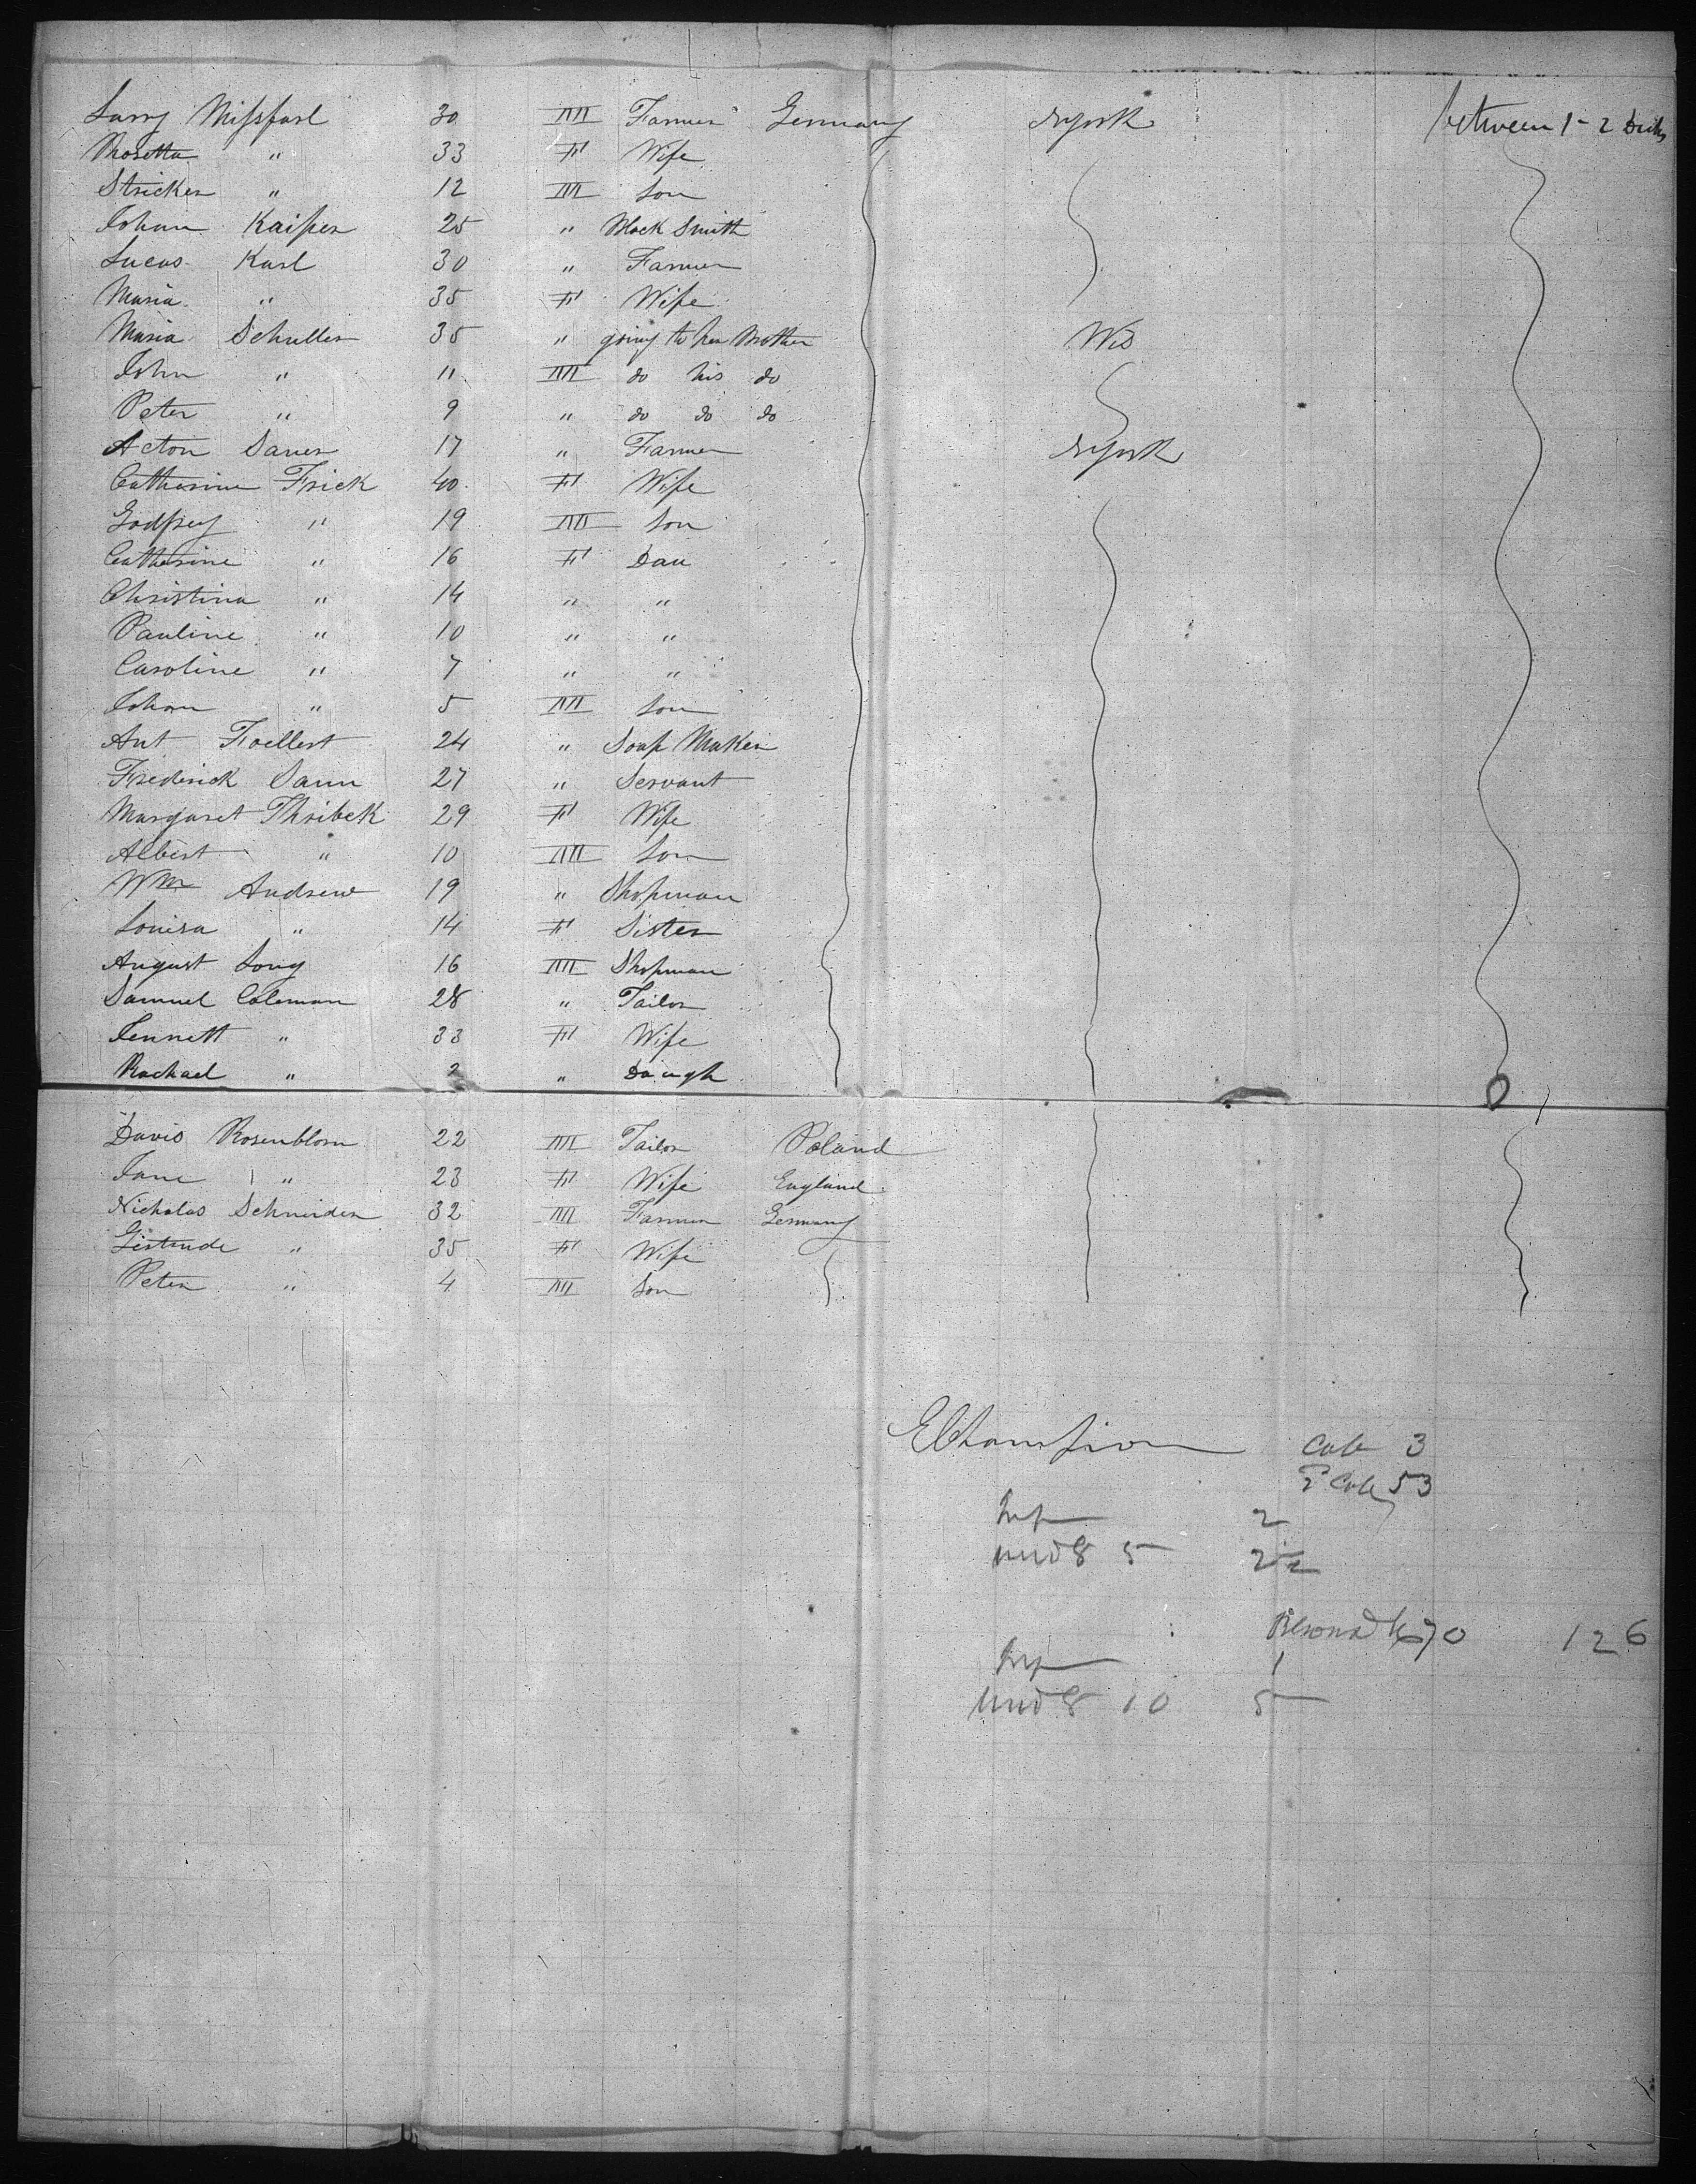 Larry Missfarl 30 M Farmer Germany NYork between 1-2 Decks
Rosetta " 33 F Wife
Stricker " 12 M Son
Johan Kaisser 25 " Block Smith
Lucas Karl 30 " Farmer
Maria " 35 F Wife
Maria Schuller 35 " going to her Mother Wis
John " 11 M do his do
Peter " 9 " do do do
Acton Sauer 17 " Farmer NYork
Catherine Frick 40 F Wife
Godfrey " 19 M Son
Catherine " 16 F Dau
Christina " 14 " "
Pauline " 10 " "
Caroline " 7 " "
Johan " 5 M Son
Ant Foellert 24 " Soap Maker
Frederick Saun 27 " Servant
Margaret Thribek 29 F Wife
Albert " 10 M Son
Wm Andrew 19 " Shopman
Louisa " 14 F Sister
August Long 16 M Shopman
Samuel Coleman 28 " Tailor
Jennett " 33 F Wife
Rachael " 2 " Daugh
Davis Rosenblom 22 M Tailor Poland
Jane " 23 F Wife England
Nicholas Schneider 32 M Farmer Germany
Gertrude " 35 F Wife
Peter " 4 M Son
EChampion
3
53
2
und 8 5 22
70 126
1
und 8 10 5